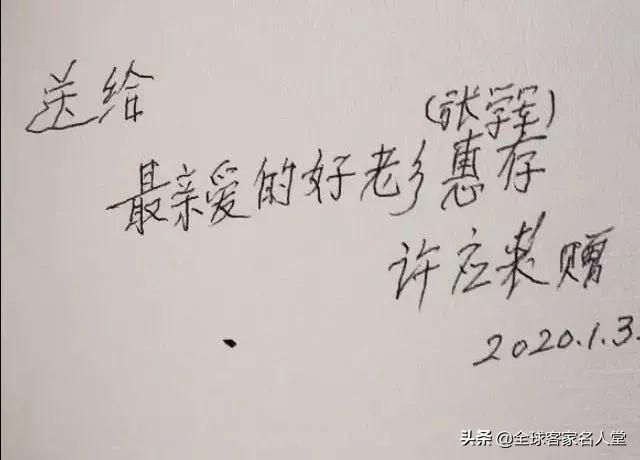 送给
(张学军)
最亲爱的好老乡惠存
许应裘赠
2020.1.3.
头条 @全球客家名人堂